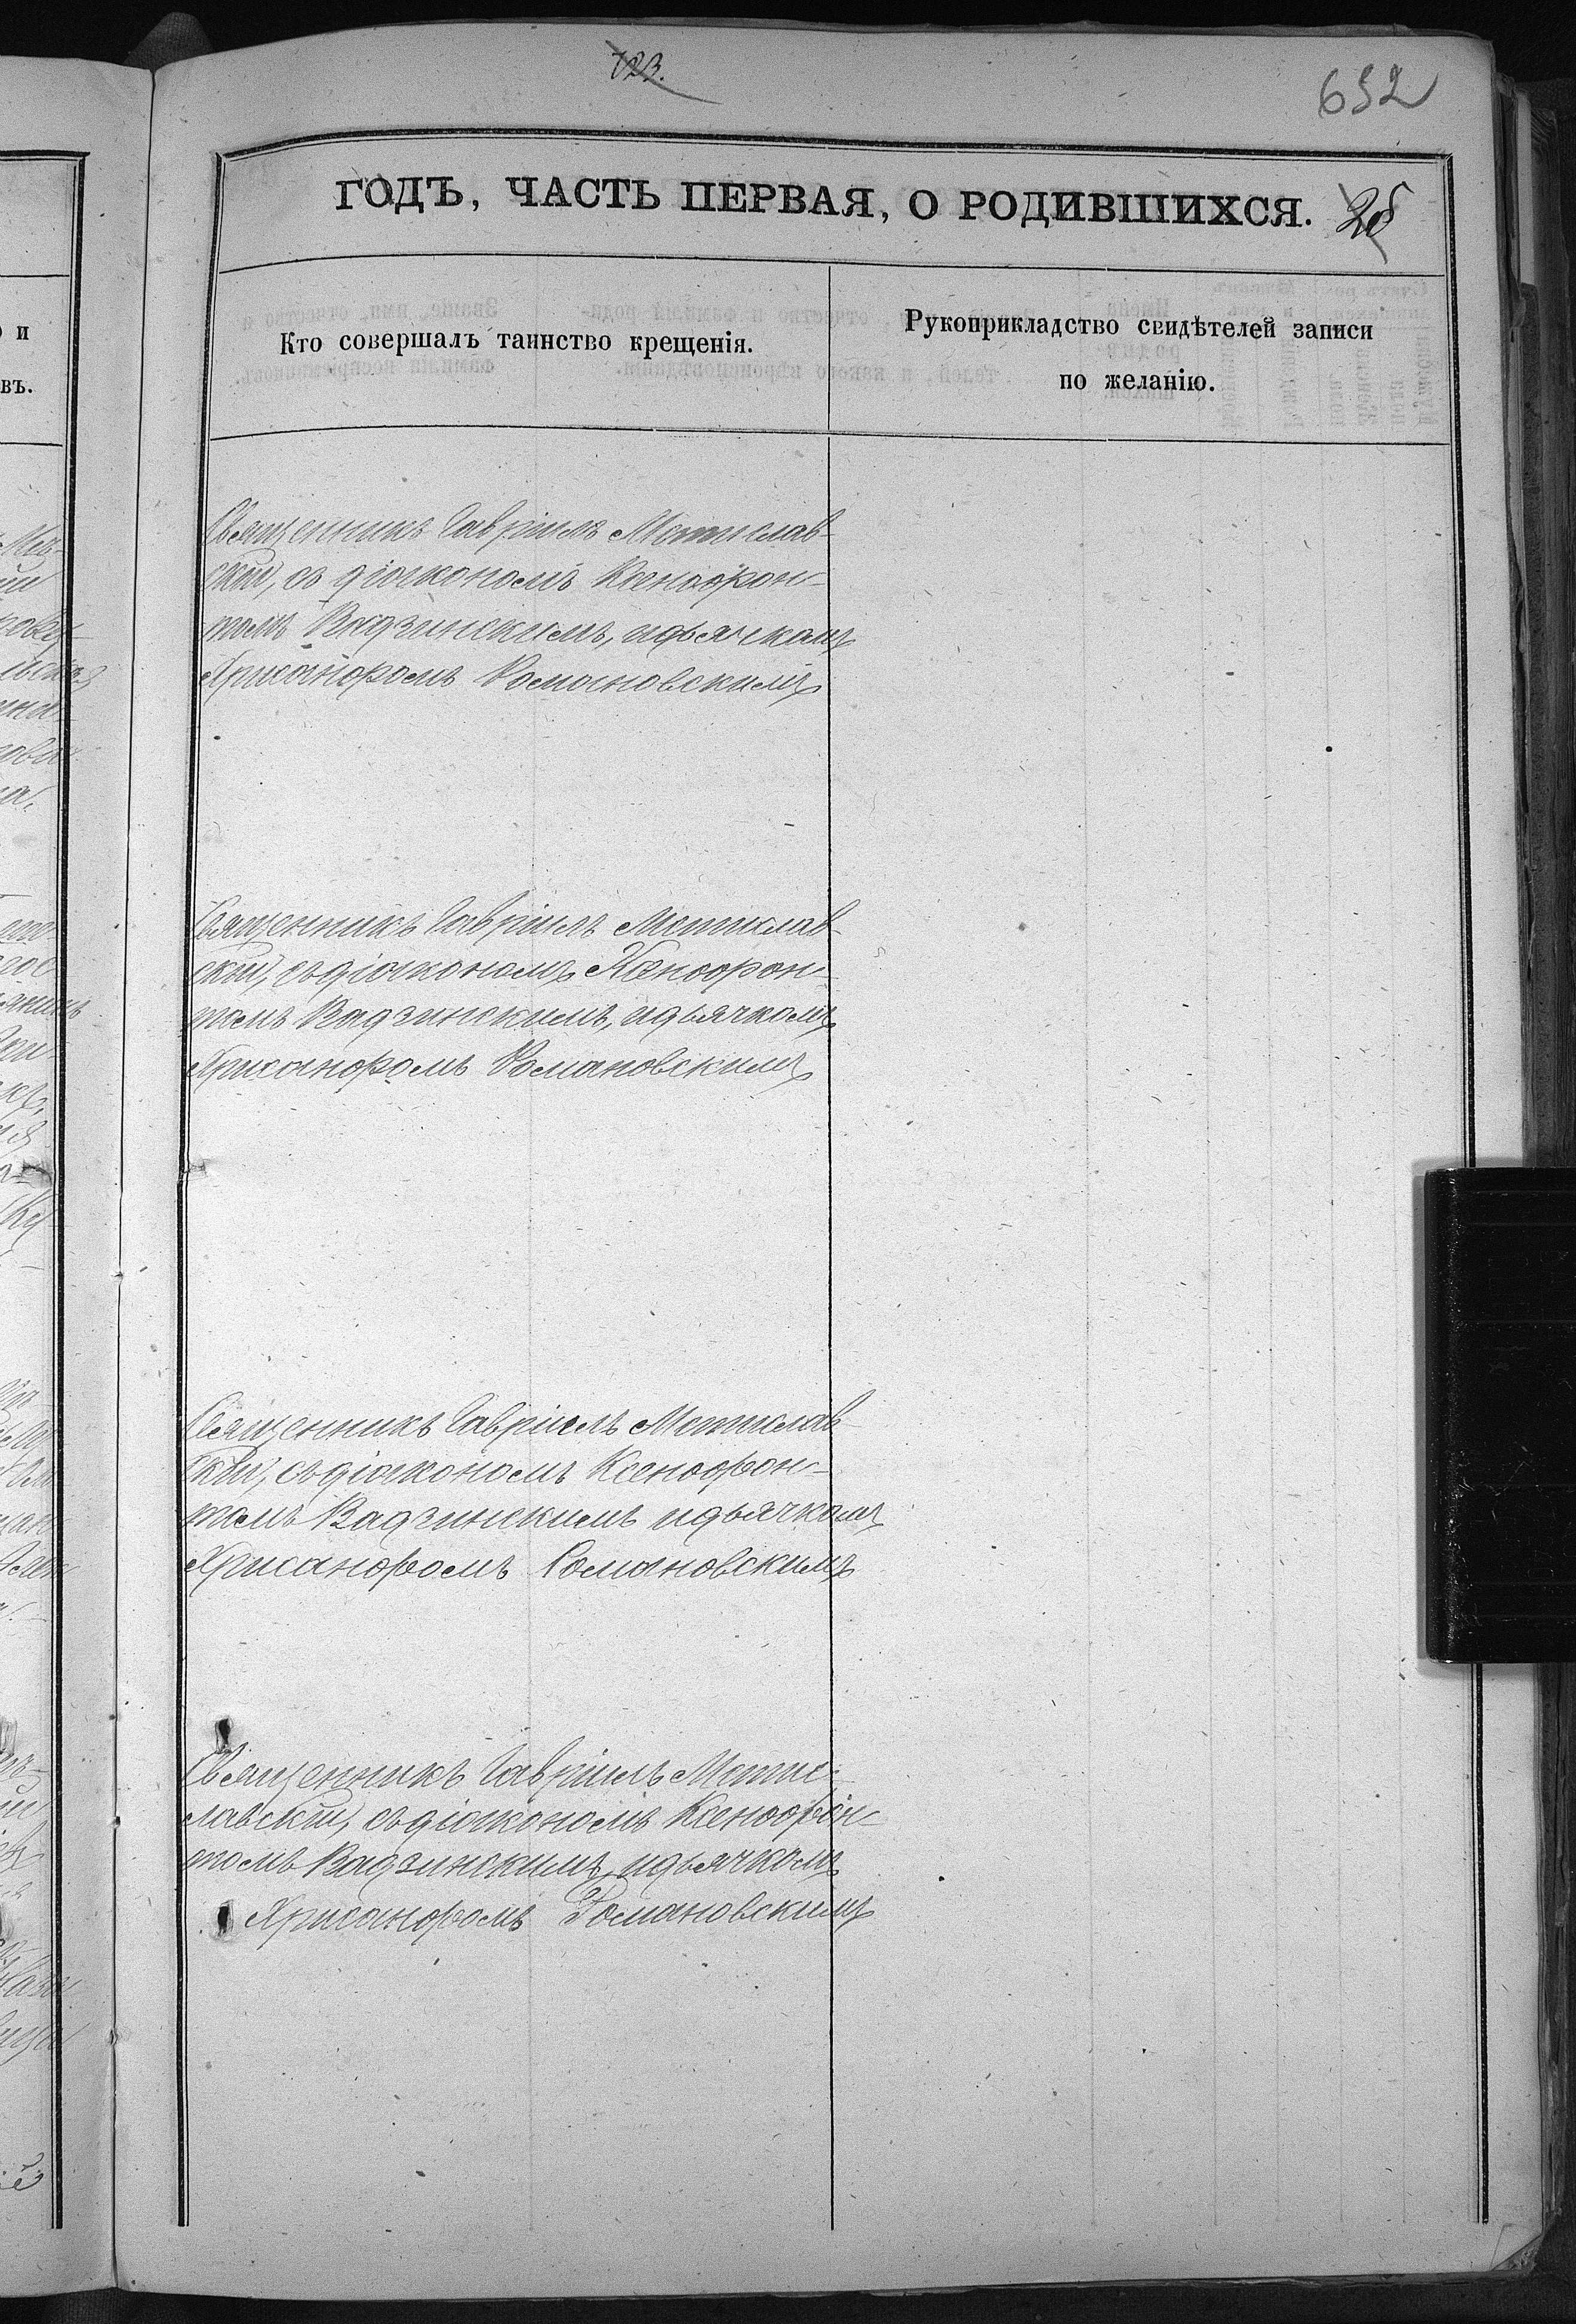 723.
652
ГОДЪ, ЧАСТЬ ПЕРВАЯ, О РОДИВШИХСЯ. 26
Кто совершалъ таинство крещенія.
Рукоприкладство свидѣтелей записи
по желанію.
Священникъ Гавріилъ Мстислав-
скій, съ діакономъ Ксенофон-
томъ Вадзинскимъ, и дьячкомъ
Хрисанфомъ Романовскимъ
Священникъ Гавріилъ Мстислав-
скій, съ діакономъ Ксенофон-
томъ Вадзинскимъ, и дьячкомъ
Хрисанфомъ Романовскимъ
Священникъ Гавріилъ Мстислав-
скій, съ діакономъ Ксенофон-
томъ Вадзинскимъ и дьячкомъ
Хрисанфомъ Романовскимъ
Священникъ Гавріилъ Мстис-
лавскій, съ діакономъ Ксенофон-
томъ Вадзинскимъ, и дьячкомъ
Хрисанфомъ Романовскимъ